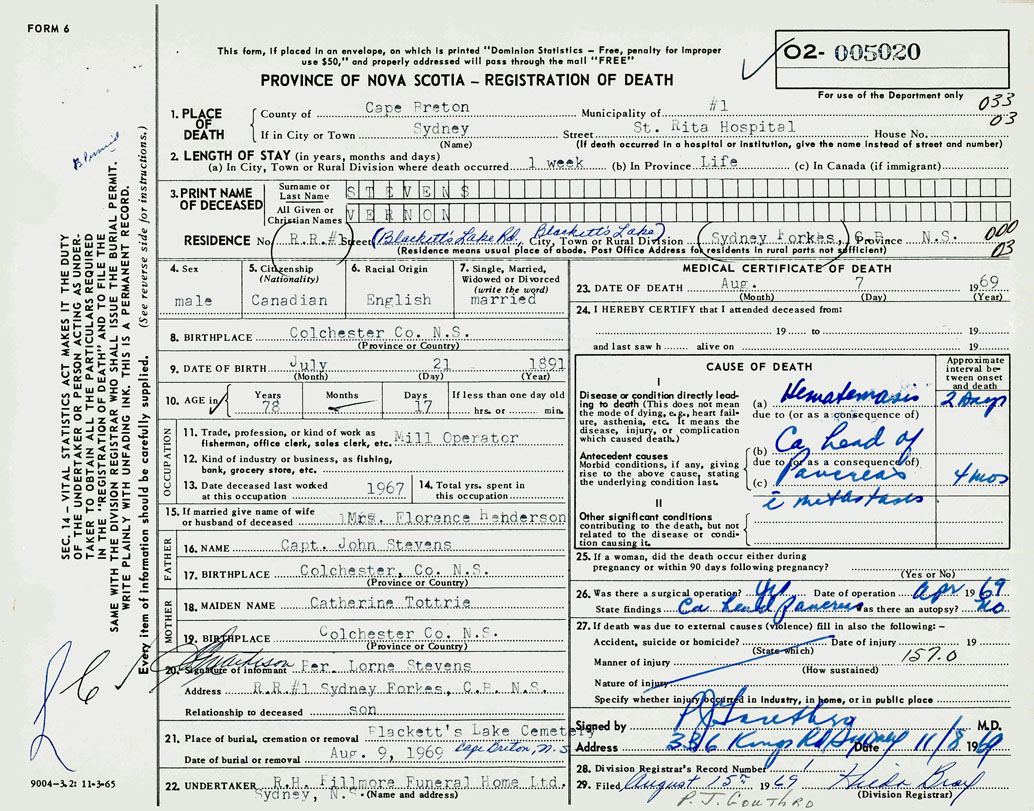 FORM 6
This form, if placed in an envelope, on which is printed "Dominion Statistics – Free, penalty for improper
use $50," and properly addressed will pass through the mail "FREE"
PROVINCE OF NOVA SCOTIA – REGISTRATION OF DEATH
02- 005020
For use of the Department only
033
03
1. PLACE OF DEATH
County of Cape Breton Municipality of #1
If in City or Town Sydney Street St. Rita Hospital House No.
(Name) (If death occurred in a hospital or institution, give the name instead of street and number)
2. LENGTH OF STAY (in years, months and days)
(a) In City, Town or Rural Division where death occurred 1 week (b) In Province Life (c) In Canada (if immigrant)
3. PRINT NAME OF DECEASED
Surname or Last Name STEVENS
All Given or Christian Names VERNON
RESIDENCE No. R.R.#1 Street (Blackett's Lake Rd, Blackett's Lake) City, Town or Rural Division Sydney Forkes, C.B. Province N.S.
(Residence means usual place of abode. Post Office Address for residents in rural parts not sufficient)
000
03
4. Sex
male
5. Citizenship
(Nationality)
Canadian
6. Racial Origin
English
7. Single, Married,
Widowed or Divorced
(write the word)
married
8. BIRTHPLACE Colchester Co. N.S.
(Province or Country)
9. DATE OF BIRTH July 21 1891
(Month) (Day) (Year)
10. AGE in
Years
78
Months
Days
17
If less than one day old
hrs. or min.
OCCUPATION
11. Trade, profession, or kind of work as
fisherman, office clerk, sales clerk, etc. Mill Operator
12. Kind of industry or business, as fishing,
bank, grocery store, etc.
13. Date deceased last worked
at this occupation 1967
14. Total yrs. spent in
this occupation
15. If married give name of wife
or husband of deceased Mrs. Florence Henderson
FATHER
16. NAME Capt. John Stevens
17. BIRTHPLACE Colchester, Co. N.S.
(Province or Country)
MOTHER
18. MAIDEN NAME Catherine Tottrie
19. BIRTHPLACE Colchester Co. N.S.
(Province or Country)
20. Signature of informant Per. Lorne Stevens
Address R.R.#1 Sydney Forkes, C.B. N.S.
Relationship to deceased son
21. Place of burial, cremation or removal Blackett's Lake Cemetery
Cape Breton, N.S.
Date of burial or removal Aug. 9, 1969
22. UNDERTAKER R.H. Fillmore Funeral Home Ltd.
Sydney, N.S. (Name and address)
MEDICAL CERTIFICATE OF DEATH
23. DATE OF DEATH Aug. 7 1969
(Month) (Day) (Year)
24. I HEREBY CERTIFY that I attended deceased from:
19 to 19
and last saw h alive on 19
CAUSE OF DEATH
Approximate
interval be-
tween onset
and death
I
Disease or condition directly lead-
ing to death (This does not mean
the mode of dying, e.g., heart fail-
ure, asthenia, etc. It means the
disease, injury, or complication
which caused death.)
(a) Hematemasis 2 Days
due to (or as a consequence of)
Antecedent causes
Morbid conditions, if any, giving
rise to the above cause, stating
the underlying condition last.
(b) Ca head of
due to (or as a consequence of)
(c) Pancreas 4 mos
c̄ metastases
II
Other significant conditions
contributing to the death, but not
related to the disease or condi-
tion causing it.
25. If a woman, did the death occur either during
pregnancy or within 90 days following pregnancy?
(Yes or No)
26. Was there a surgical operation? Yes Date of operation Apr 1969
State findings Ca head Pancreas Was there an autopsy? No
27. If death was due to external causes (violence) fill in also the following:–
Accident, suicide or homicide? Date of injury 19
(State which)
Manner of injury 157.0
(How sustained)
Nature of injury
Specify whether injury occurred in Industry, in home, or in public place
Signed by P J Gouthro M.D.
Address 336 Kings Rd Sydney Date 11/8 1969
28. Division Registrar's Record Number
29. Filed August 15th 1969 Hilda Bray
(Division Registrar)
P.J. GOUTHRO
SEC. 14 – VITAL STATISTICS ACT MAKES IT THE DUTY
OF THE UNDERTAKER OR PERSON ACTING AS UNDER-
TAKER TO OBTAIN ALL THE PARTICULARS REQUIRED
IN THE "REGISTRATION OF DEATH" AND TO FILE THE
SAME WITH THE DIVISION REGISTRAR WHO SHALL ISSUE THE BURIAL PERMIT.
WRITE PLAINLY WITH UNFADING INK. THIS IS A PERMANENT RECORD.
Every item of information should be carefully supplied. (See reverse side for instructions.)
9004–3.2: 11-3-65